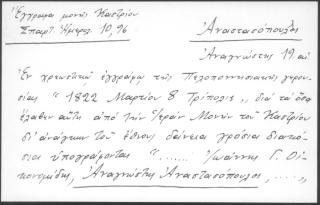 Ἔγγραφα μονῆς Καστρίου
Σπαρτ. Ἡμερολ. 10, 96
Ἀναστασόπουλος
Ἀναγνώστης 19 αἰ
Ἐν χρεωστικῷ ἐγγράφῳ τῆς Πελοποννησιακῆς γερου-
σίας "1822 Μαρτίου 8 Τριπολιτζᾶ", διὰ τὰ ὅσα
ἔλαβεν αὕτη ἀπὸ τὴν Ἱερὰν Μονὴν τοῦ Καστρίου
δι' ἀνάγκην τοῦ ἔθνους δάνεια γρόσια διακό-
σια ὑπογράφονται "...... Ἰωάννης Γ. Οἰ-
κονομίδης, Ἀναγνώστης Ἀναστασόπουλος, ......"